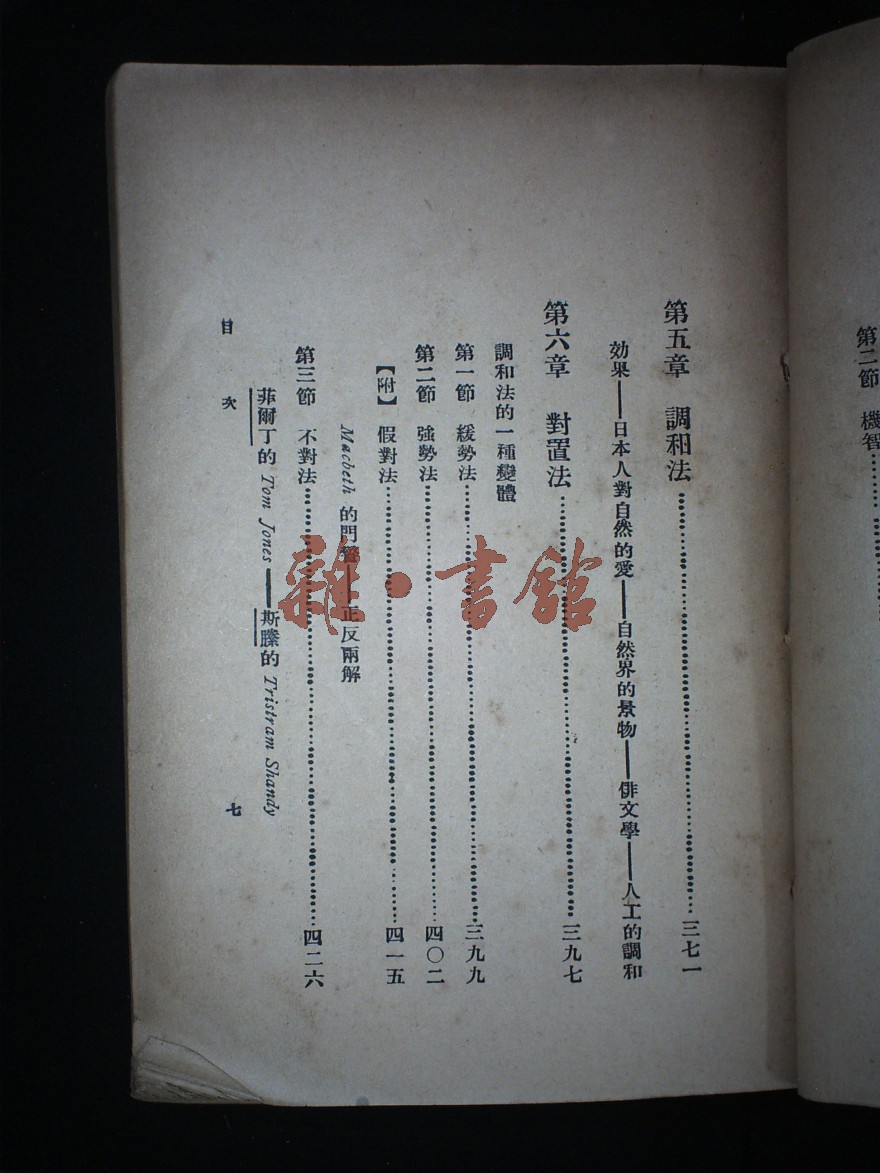 第二節 機智……
第五章 調和法……三七一
効果——日本人對自然的愛——自然界的景物——俳文學——人工的調和
第六章 對置法……三九七
調和法的一種變體
第一節 緩勢法……三九九
第二節 強勢法……四〇二
【附】 假對法……四一五
Macbeth 的門——正反兩解
第三節 不對法……四二六
菲爾丁的 Tom Jones——斯騰的 Tristram Shandy
目 次
七
雜·書館